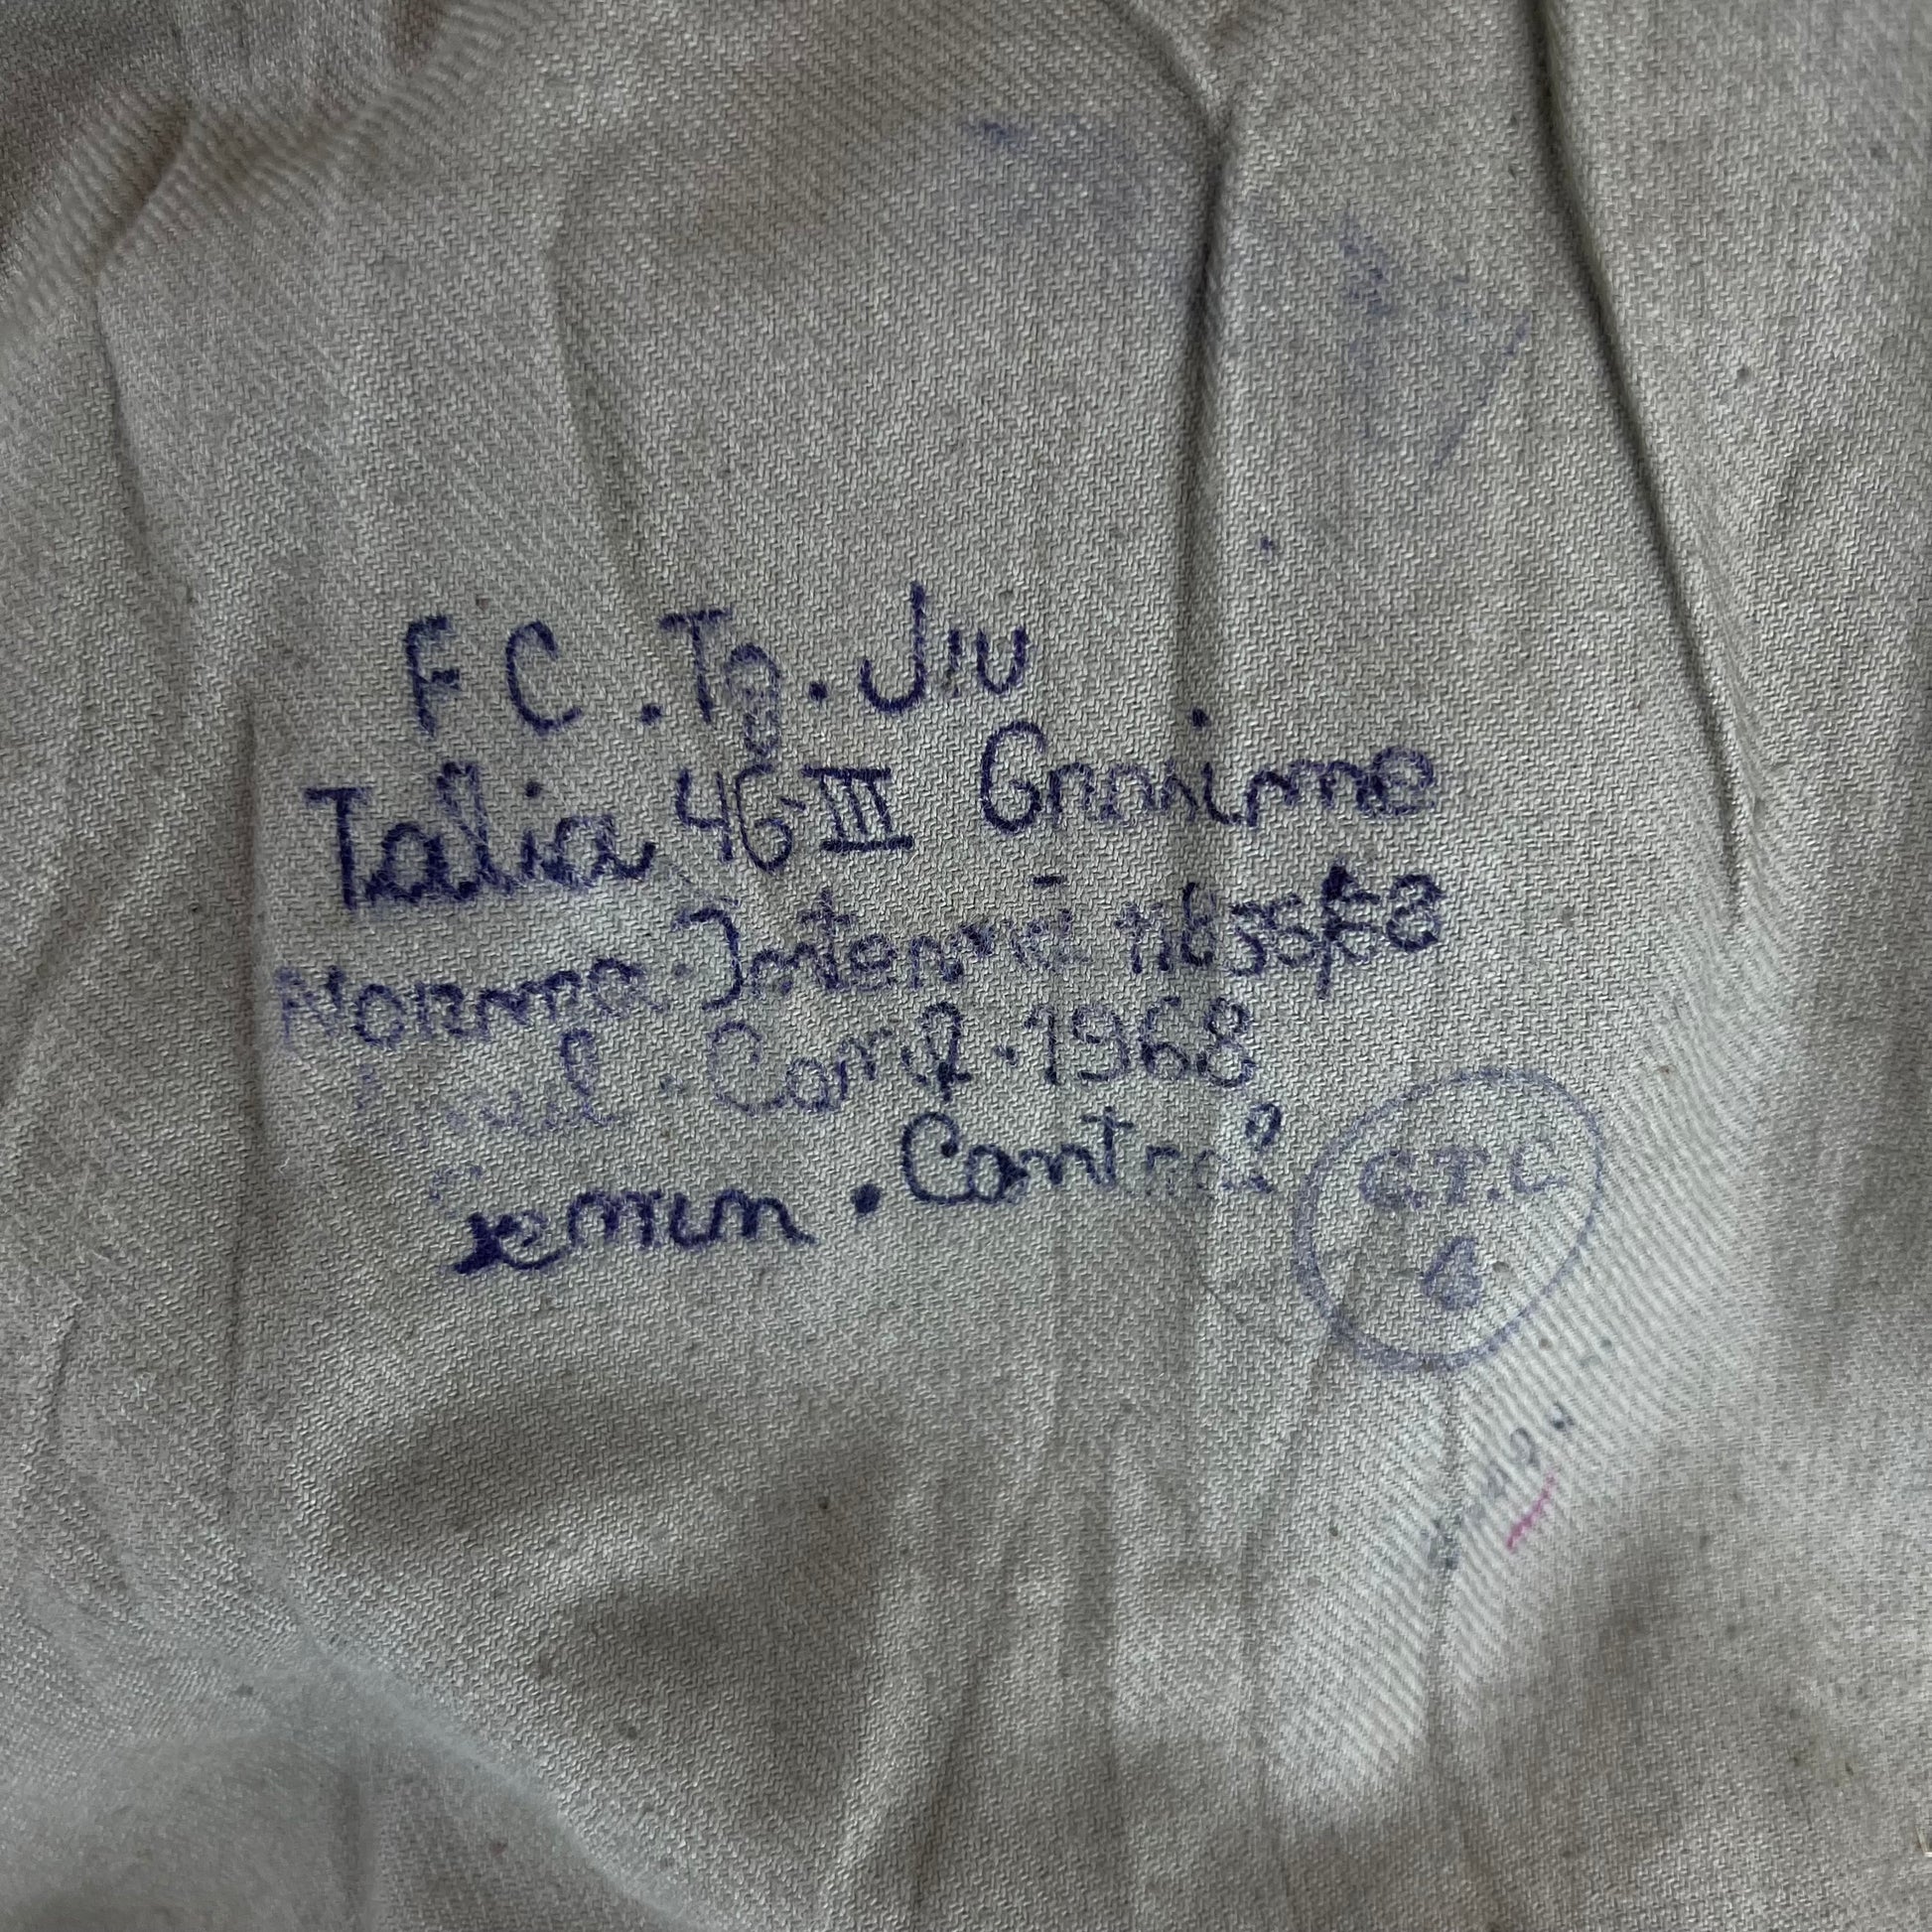 FC.Tg.Jiu
Talia 46-III Grosime
Norma.Internă
Anul.Conf.1968
Semn.Control
C.T.C
6